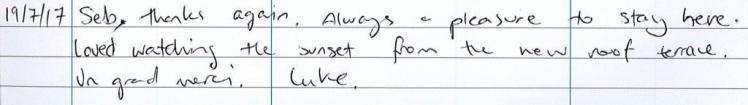 19/7/17 Seb, thanks again. Always a pleasure to stay here.
Loved watching the sunset from the new roof terrace.
Un grad merci. Luke.